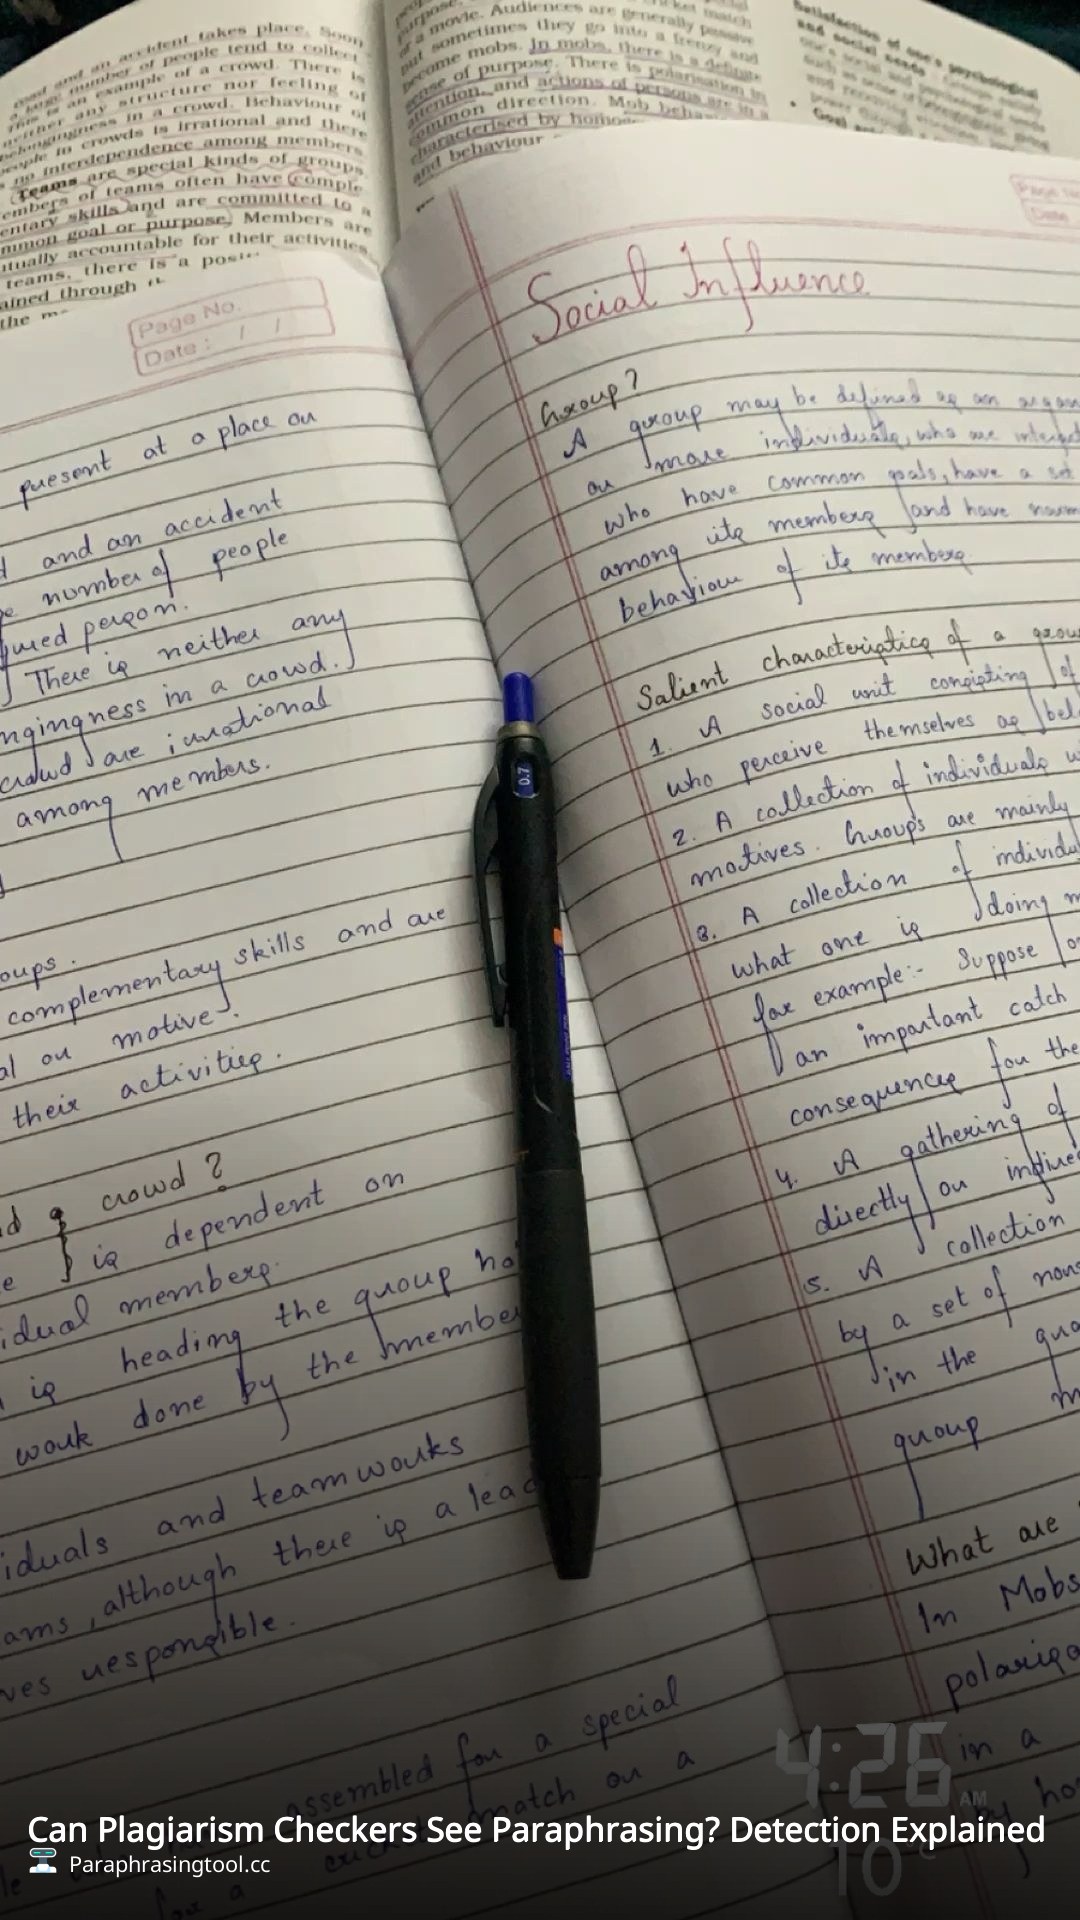 road and an accident takes place. Soon
a large number of people tend to collect.
This is an example of a crowd. There is
neither any structure nor feeling of
belongingness in a crowd. Behaviour of
people in crowds is irrational and there
is no interdependence among members
Teams are special kinds of groups.
embers of teams often have comple
entary skills and are committed to a
mmon goal or purpose. Members are
utually accountable for their activities
teams, there is a posi
ained through it
the m
or a movie. Audiences are generally passive
but sometimes they go into a frenzy and
become mobs. In mobs, there is a definite
sense of purpose. There is polarisation in
attention, and actions of persons are in a
common direction. Mob behav
characterised by homog
and behaviour
Satisfaction of one's psychological
and social needs
Page No.
Date : / /
present at a place or
and an accident
number of people
jured person.
There is neither any
ngingness in a crowd.
crowd are irrational
among members.
oups.
complementary skills and are
al or motive.
their activities.
crowd ?
is dependent on
idual members.
is heading the group
work done by the member
iduals and teamworks
ams, although there is a lead
ves responsible.
assembled for a special
match or a
for a
Page No
Date
Social Influence
Group?
A group may be defined as an organ
or more individuals, who are interact
who have common goals, have a set
among its members and have norm
behaviour of its members.
Salient characteristics of a grou
1. A social unit consisting of
who perceive themselves as bel
2. A collection of individuals w
motives. Groups are mainly
3. A collection of individu
what one is doing m
for example:- Suppose
an important catch
consequences for the
4. A gathering of
directly or indire
5. A collection
by a set of
in the gro
group m
What are
In Mobs
polarisa
in a
0.7
4:26 AM
10°C
Can Plagiarism Checkers See Paraphrasing? Detection Explained
Paraphrasingtool.cc